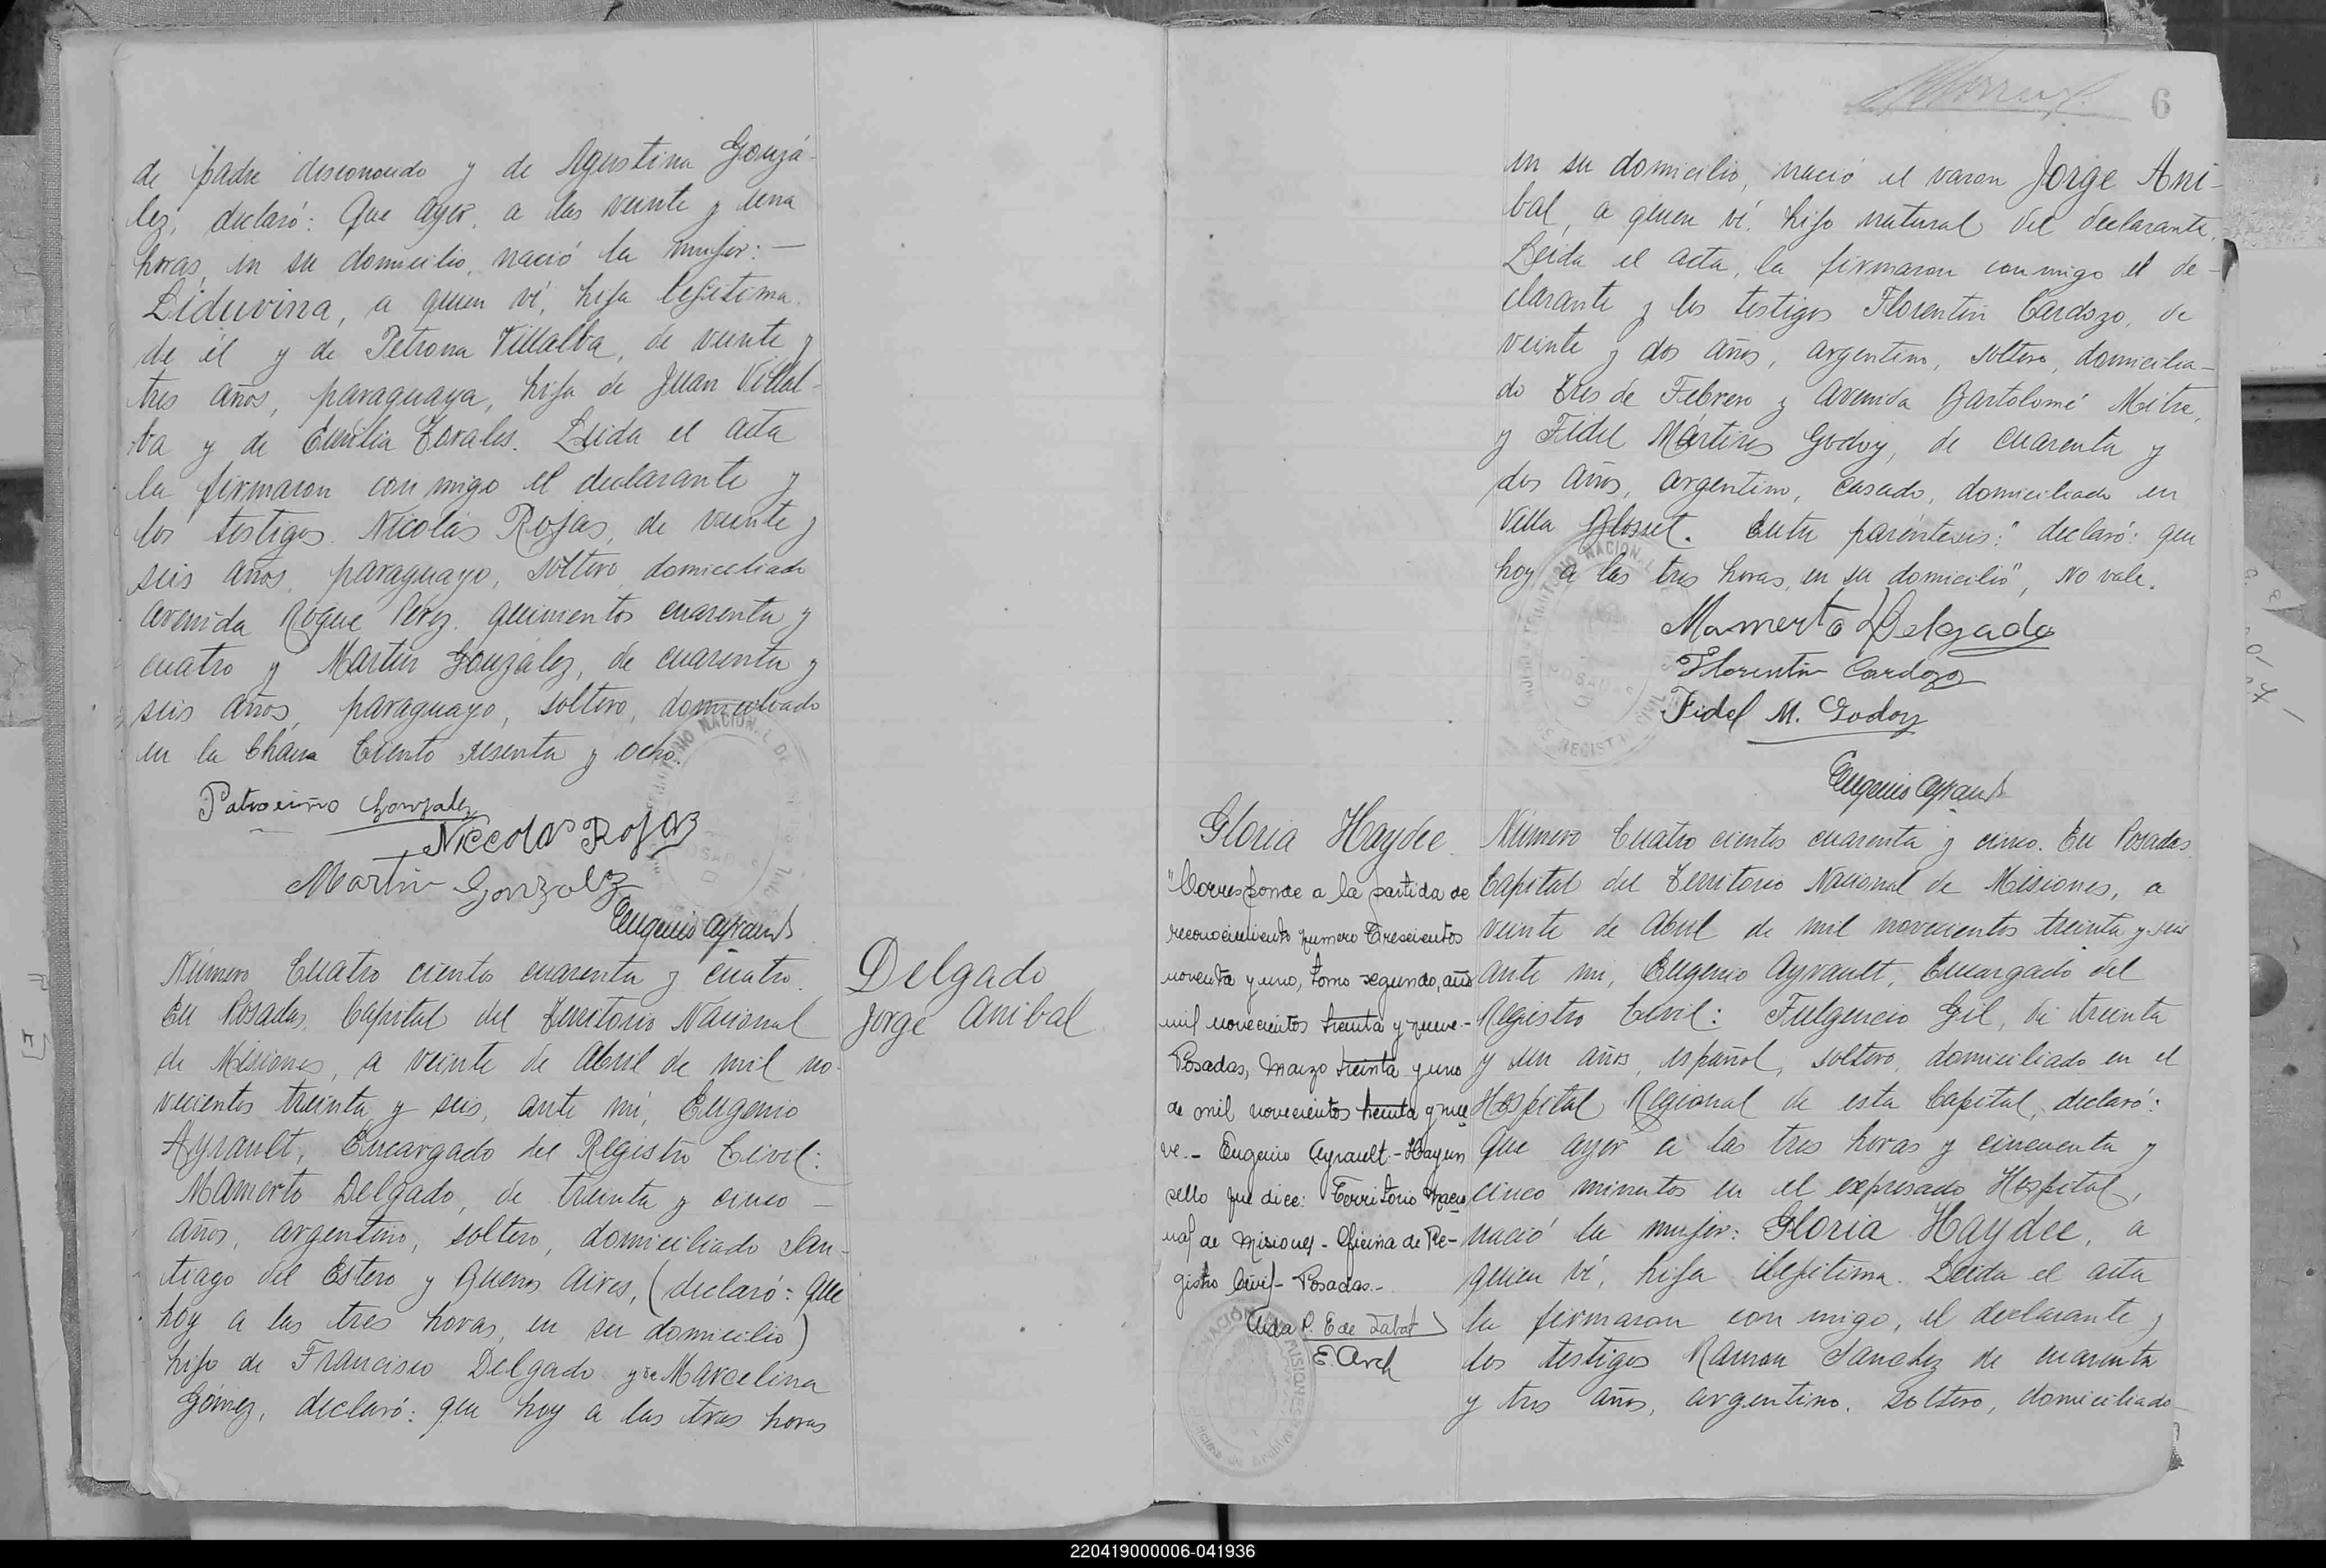 de padre desconocido y de Agustina Gonzá-
lez, declaró: Que ayer, a las veinte y una
horas, en su domicilio, nació la mujer: —
Liduvina, a quien ví, hija legítima
de él y de Petrona Villalba, de veinte y
tres años, paraguaya, hija de Juan Villal-
ba y de Emilia Torales. Leida el acta
la firmaron con migo el declarante y
los testigos Nicolás Rojas, de veinte y
seis años, paraguayo, soltero, domiciliado
Avenida Roque Perez quinientos cuarenta y
cuatro y Martin González, de cuarenta y
seis años, paraguayo, soltero, domiciliado
en la Chácra Ciento sesenta y ocho.
Patrocinio Gonzalez
Niccolas Rojas
Martin Gonzalez
Eugenio Ayrault
Número Cuatro cientos cuarenta y cuatro.
En Posadas, Capital del Territorio Nacional
de Misiones, a veinte de Abril de mil no-
vecientos treinta y seis, ante mí, Eugenio
Ayrault, Encargado del Registro Civil:
Mamerto Delgado, de treinta y cinco —
años, argentino, soltero, domiciliado San-
tiago del Estero y Buenos Aires, (declaró: que
hoy a las tres horas, en su domicilio)
hijo de Francisco Delgado y de Marcelina
Gómez, declaró: que hoy a las tres horas
Delgado
Jorge Anibal
6
en su domicilio, nació el varon Jorge Ani-
bal, a quien ví, hijo natural del declarante.
Leida el acta, la firmaron con migo el de-
clarante y los testigos Florentin Cardozo, de
veinte y dos años, argentino, soltero, domicilia-
do Tres de Febrero y Avenida Bartolomé Mitre,
y Fidel Mártires Godoy, de cuarenta y
dos años, argentino, casado, domiciliado en
Villa Blosset. Entre paréntesis: "declaró: que
hoy a las tres horas, en su domicilio", No vale.
Mamerto Delgado
Florentin Cardozo
Fidel M. Godoy
Eugenio Ayrault
Gloria Haydee
"Corresponde a la partida de
reconocimiento numero Trescientos
noventa y uno, tomo segundo, año
mil novecientos treinta y nueve.-
Posadas, Marzo treinta y uno
de mil novecientos treinta y nue
ve.- Eugenio Ayrault.- Hay un
sello que dice: Territorio Nacio
nal de Misiones - Oficina de Re-
gistro Civil - Posadas.-
Aida P. E de Labat
E. Arch
Número Cuatro cientos cuarenta y cinco. En Posadas
Capital del Territorio Nacional de Misiones, a
veinte de Abril de mil novecientos treinta y seis
ante mi, Eugenio Ayrault, Encargado del
Registro Civil: Fulgencio Gil, de treinta
y un años, español, soltero, domiciliado en el
Hospital Regional de esta Capital, declaró:
que ayer a las tres horas y cincuenta y
cinco minutos en el expresado Hospital,
nació la mujer: Gloria Haydee, a
quien ví, hija ilegítima. Leida el acta
la firmaron con migo, el declarante y
los testigos Ramon Sanchez de cuarenta
y tres años, argentino, soltero, domiciliado
220419000006-041936